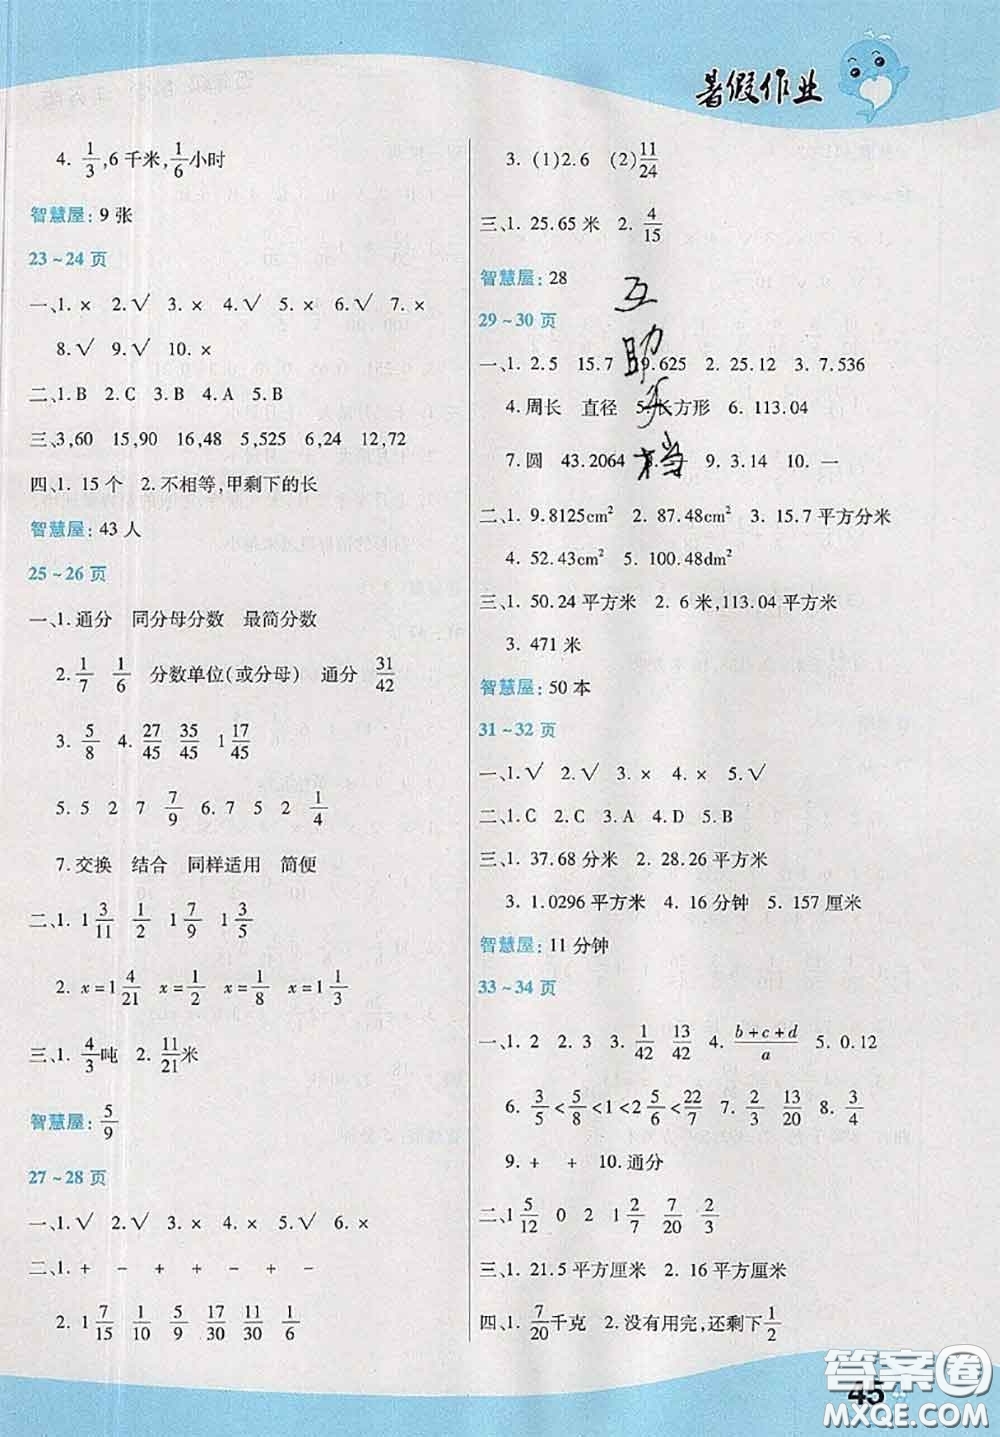 暑假作业
4. 1/3,6千米,1/6小时
智慧屋:9张
23~24页
一、1. × 2.√ 3. × 4.√ 5. × 6.√ 7. ×
8.√ 9.√ 10. ×
二、1.B 2.C 3.B 4.A 5.B
三、3,60 15,90 16,48 5,525 6,24 12,72
四、1. 15个 2.不相等,甲剩下的长
智慧屋:43人
25~26页
一、1.通分 同分母分数 最简分数
2. 1/7 1/6 分数单位(或分母) 通分 31/42
3. 5/8 4. 27/45 35/45 1 17/45
5. 5 2 7 7/9 6. 7 5 2 1/4
7.交换 结合 同样适用 简便
二、1. 1 3/11 1/2 1 7/9 1 3/5
2. x=1 4/21 x=1/2 x=1/8 x=1 3/4
三、1. 4/3吨 2. 11/21米
智慧屋:5/9
27~28页
一、1.√ 2.√ 3. × 4. × 5.√ 6. ×
二、1. + − + − + −
2. 1 7/15 1/10 5/9 17/30 11/30
3. (1)2.6 (2)11/24
三、1. 25.65米 2. 4/15
智慧屋:28
29~30页
一、1. 2.5 15.7 19.625 2. 25.12 3. 7.536
4.周长 直径 5.长方形 6. 113.04
7.圆 43.2064 9. 3.14 10. 一
二、1. 9.8125cm² 2. 87.48cm² 3. 15.7平方分米
4. 52.43cm² 5. 100.48dm²
三、1. 50.24平方米 2. 6米,113.04平方米
3. 471米
智慧屋:50本
31~32页
一、1.√ 2.√ 3. × 4. × 5.√
二、1.C 2.C 3.A 4.D 5.B
三、1. 37.68分米 2. 28.26平方米
3. 1.0296平方米 4. 16分钟 5. 157厘米
智慧屋:11分钟
33~34页
一、1. 2 2. 3 3. 1/42 13/42 4. (b+c+d)/a 5. 0.12
6. 3/5<5/8<1<2 5/6<22/7 7. 7/20 13/45 8. 3/4
9. + + 10.通分
二、1 5/12 0 2 1 2/7 7/20 2/3
三、1. 21.5平方厘米 2. 14平方厘米
四、1. 7/20千克 2.没有用完,还剩下1/2
互
助
文
档
45
答案圈
MXQE.COM